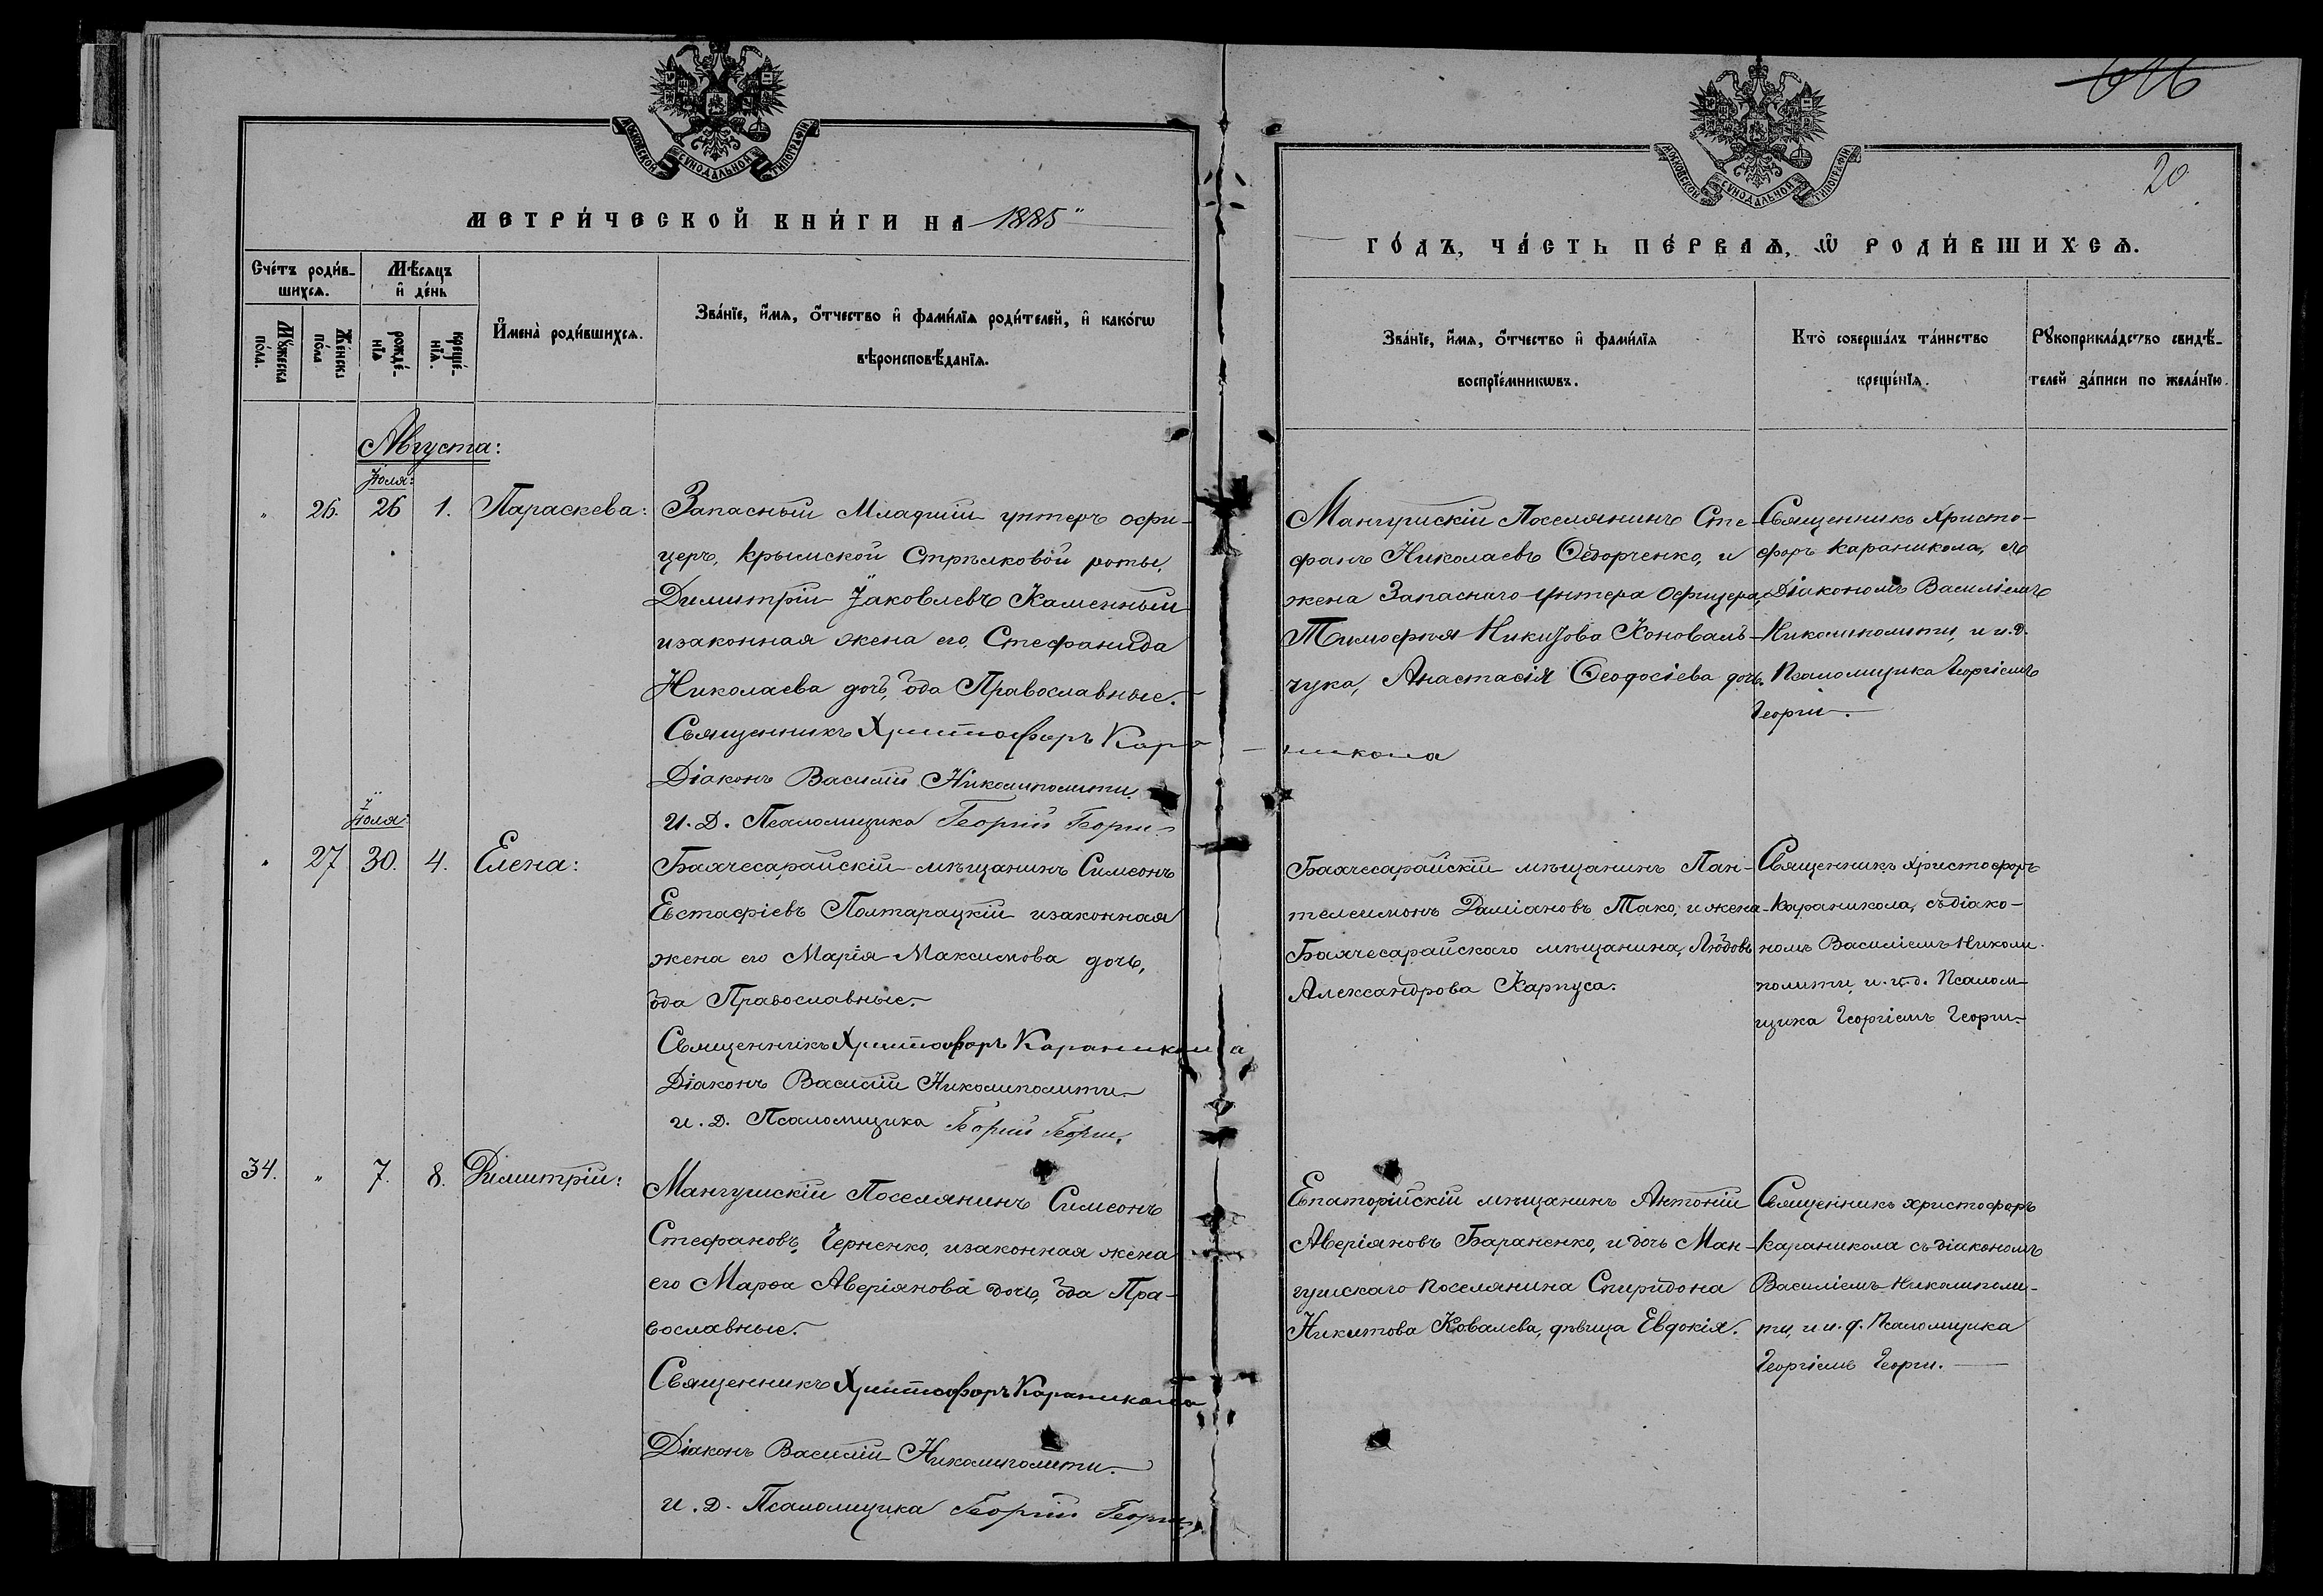 МОСКОВСКОЙ СѴНОДАЛЬНОЙ ТИПОГРАФІИ
МЕТРИ́ЧЕСКОЙ КНИ́ГИ НА 1885"
Сче́тъ роди́в-
шихсѧ.
Мꙋ́жеска
по́ла.
Же́нска
по́ла
Мѣ́сѧцъ
и҆ де́нь
рожде́-
нїѧ
креще́-
нїѧ.
И҆мена̀ роди́вшихсѧ.
Зва́нїе, и҆́мѧ, ѻ҆́тчество и҆ фами́лїѧ роди́телей, и҆ како́гѡ
вѣроисповѣ́данїѧ.
Августа:
Іюля:
" 26. 26 1. Параскева:
Запасный Младшій унтеръ офи-
церъ, Крымской Стрѣлковой роты,
Димитрій Іаковлевъ Каменный
изаконная жена его, Стефанида
Николаева дочь, оба Православные.
Священникъ Христофоръ Кара-
никола
Діаконъ Василій Николиполити.
И. Д. Псаломщика Георгій Георги
Іюля:
" 27 30. 4. Елена:
Бахчесарайскій мѣщанинъ Симеонъ
Евстафіевъ Полтарацкій изаконная
жена его Марія Максимова дочь,
оба Православные.
Священникъ Христофоръ Караникола
Діаконъ Василій Николиполити
и. Д. Псаломщика Георгій Георги.
34. " 7. 8. Димитрій:
Мангушскій Поселянинъ Симеонъ
Стефановъ, Черненко, изаконная жена
его Марѳа Аверіянова дочь, оба Пра-
вославные.
Священникъ Христофоръ Караникола
Діаконъ Василій Николиполити.
и. Д. Псаломщика Георгій Георги
МОСКОВСКОЙ СѴНОДАЛЬНОЙ ТИПОГРАФІИ
20
ГО́ДЪ, ЧА́СТЬ ПЕ́РВАѦ, Ѡ҆ РОДИ́ВШИХСѦ.
Зва́нїе, и҆́мѧ, ѻ҆́тчество и҆ фами́лїѧ
воспрїе́мникѡвъ.
Кто̀ соверша́лъ та́инство
креще́нїѧ.
Рꙋкоприкла́дство свидѣ́-
телей за́писи по жела́нїю.
Мангушскій Поселянинъ Сте-
фанъ Николаевъ Ѳедорченко, и
жена Запаснаго Унтера Офицера,
Тимофѣя Никитова Коноваль-
чука, Анастасія Ѳеодосіева дочь.
Священникъ Христо-
форъ Караникола, съ
Діакономъ Василіемъ
Николиполити, и и.д.
Псаломщика Георгіемъ
Георги.
Бахчесарайскій мѣщанинъ Пан-
телеимонъ Даміановъ Тако, и жена
Бахчесарайскаго мѣщанина, Любовь
Александрова Карпуса.
Священникъ Христофоръ
Караникола, съ діако-
номъ Василіемъ Николи
полити, и. и. д. Псалом-
щика Георгіемъ Георги.
Евпаторійскій мѣщанинъ Антоній
Аверіяновъ Бараненко, и дочь Ман-
гушскаго поселянина Спиридона
Никитова Ковалева, дѣвица Евдокія.
Священникъ Христофоръ
Караникола съ діакономъ
Василіемъ Николиполи-
ти, и и. д. Псаломщика
Георгіемъ Георги.